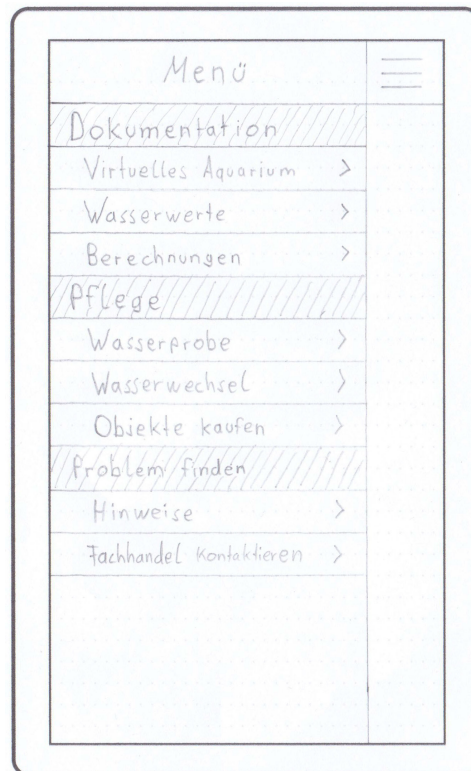 Menü
Dokumentation
Virtuelles Aquarium >
Wasserwerte >
Berechnungen >
Pflege
Wasserprobe >
Wasserwechsel >
Objekte kaufen >
Problem finden
Hinweise >
Fachhandel kontaktieren >